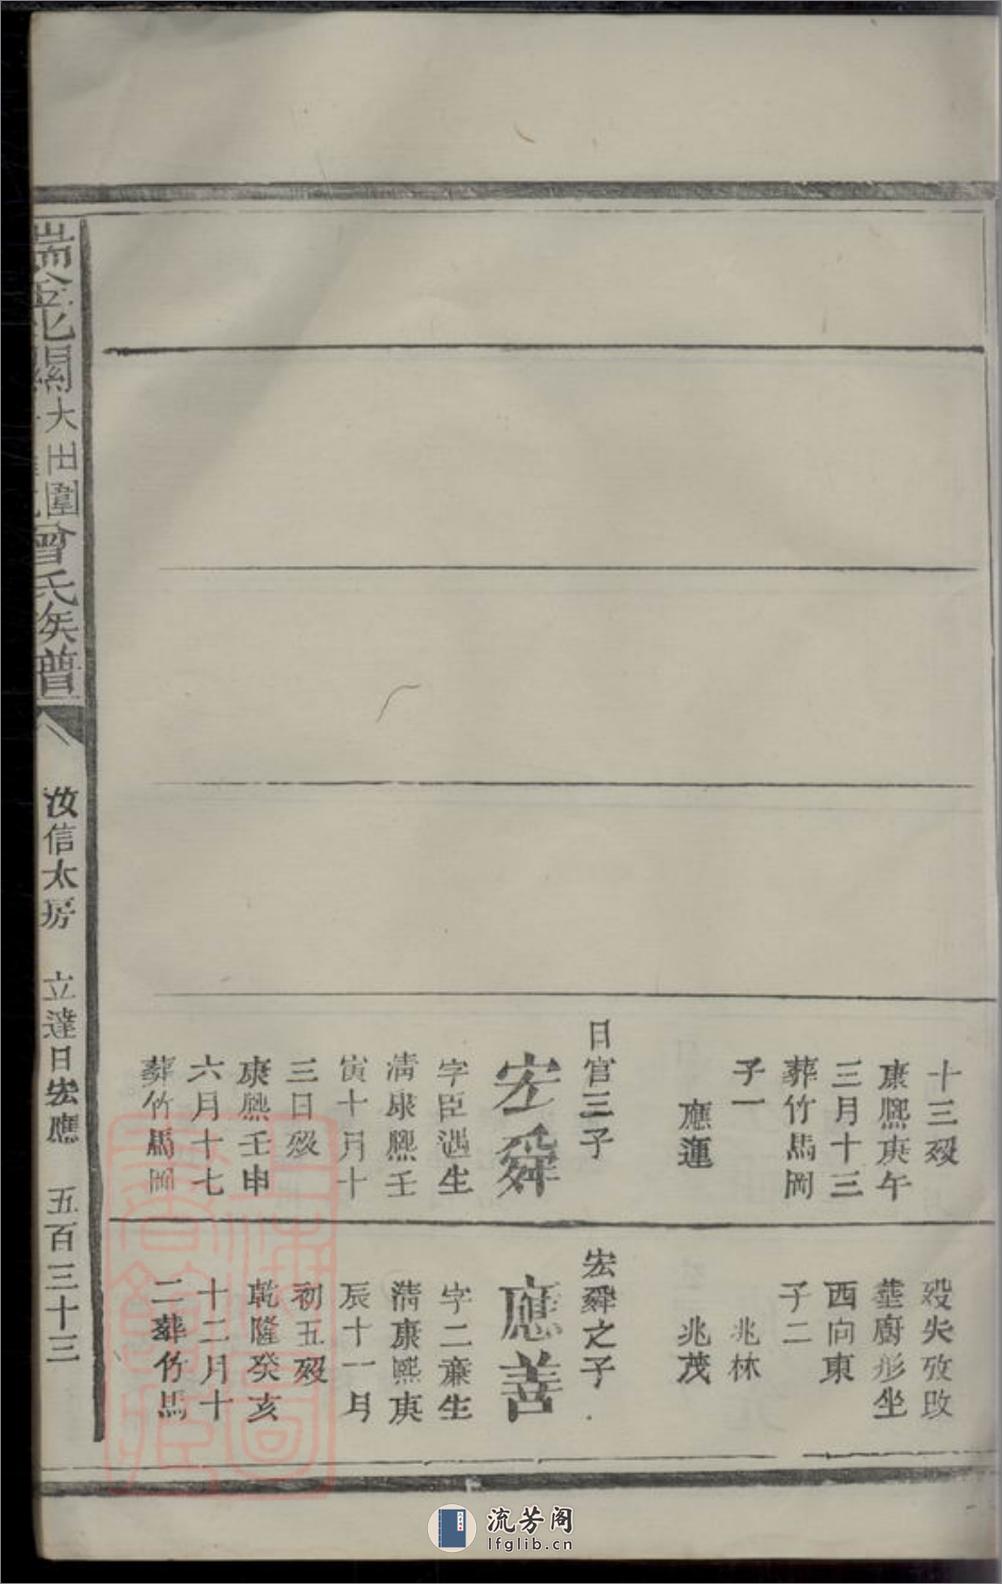 十三殁
康熙庚午
三月十三
葬竹馬岡
子一
應運
日官三子
宏舜
字臣遇生
清康熙壬
寅十月十
三日殁
康熙壬申
六月十七
葬竹馬岡
殁失攷
葬廚形坐
西向東
子二
兆林
兆茂
宏舜之子
應善
字二廉生
清康熙庚
辰十一月
初五殁
乾隆癸亥
十二月十
二葬竹馬
瑞金北關
大田圍
曾氏族譜
汝信太房 立達日宏應 五百三十三
上海圖
書館藏
流芳阁
lfglib.cn